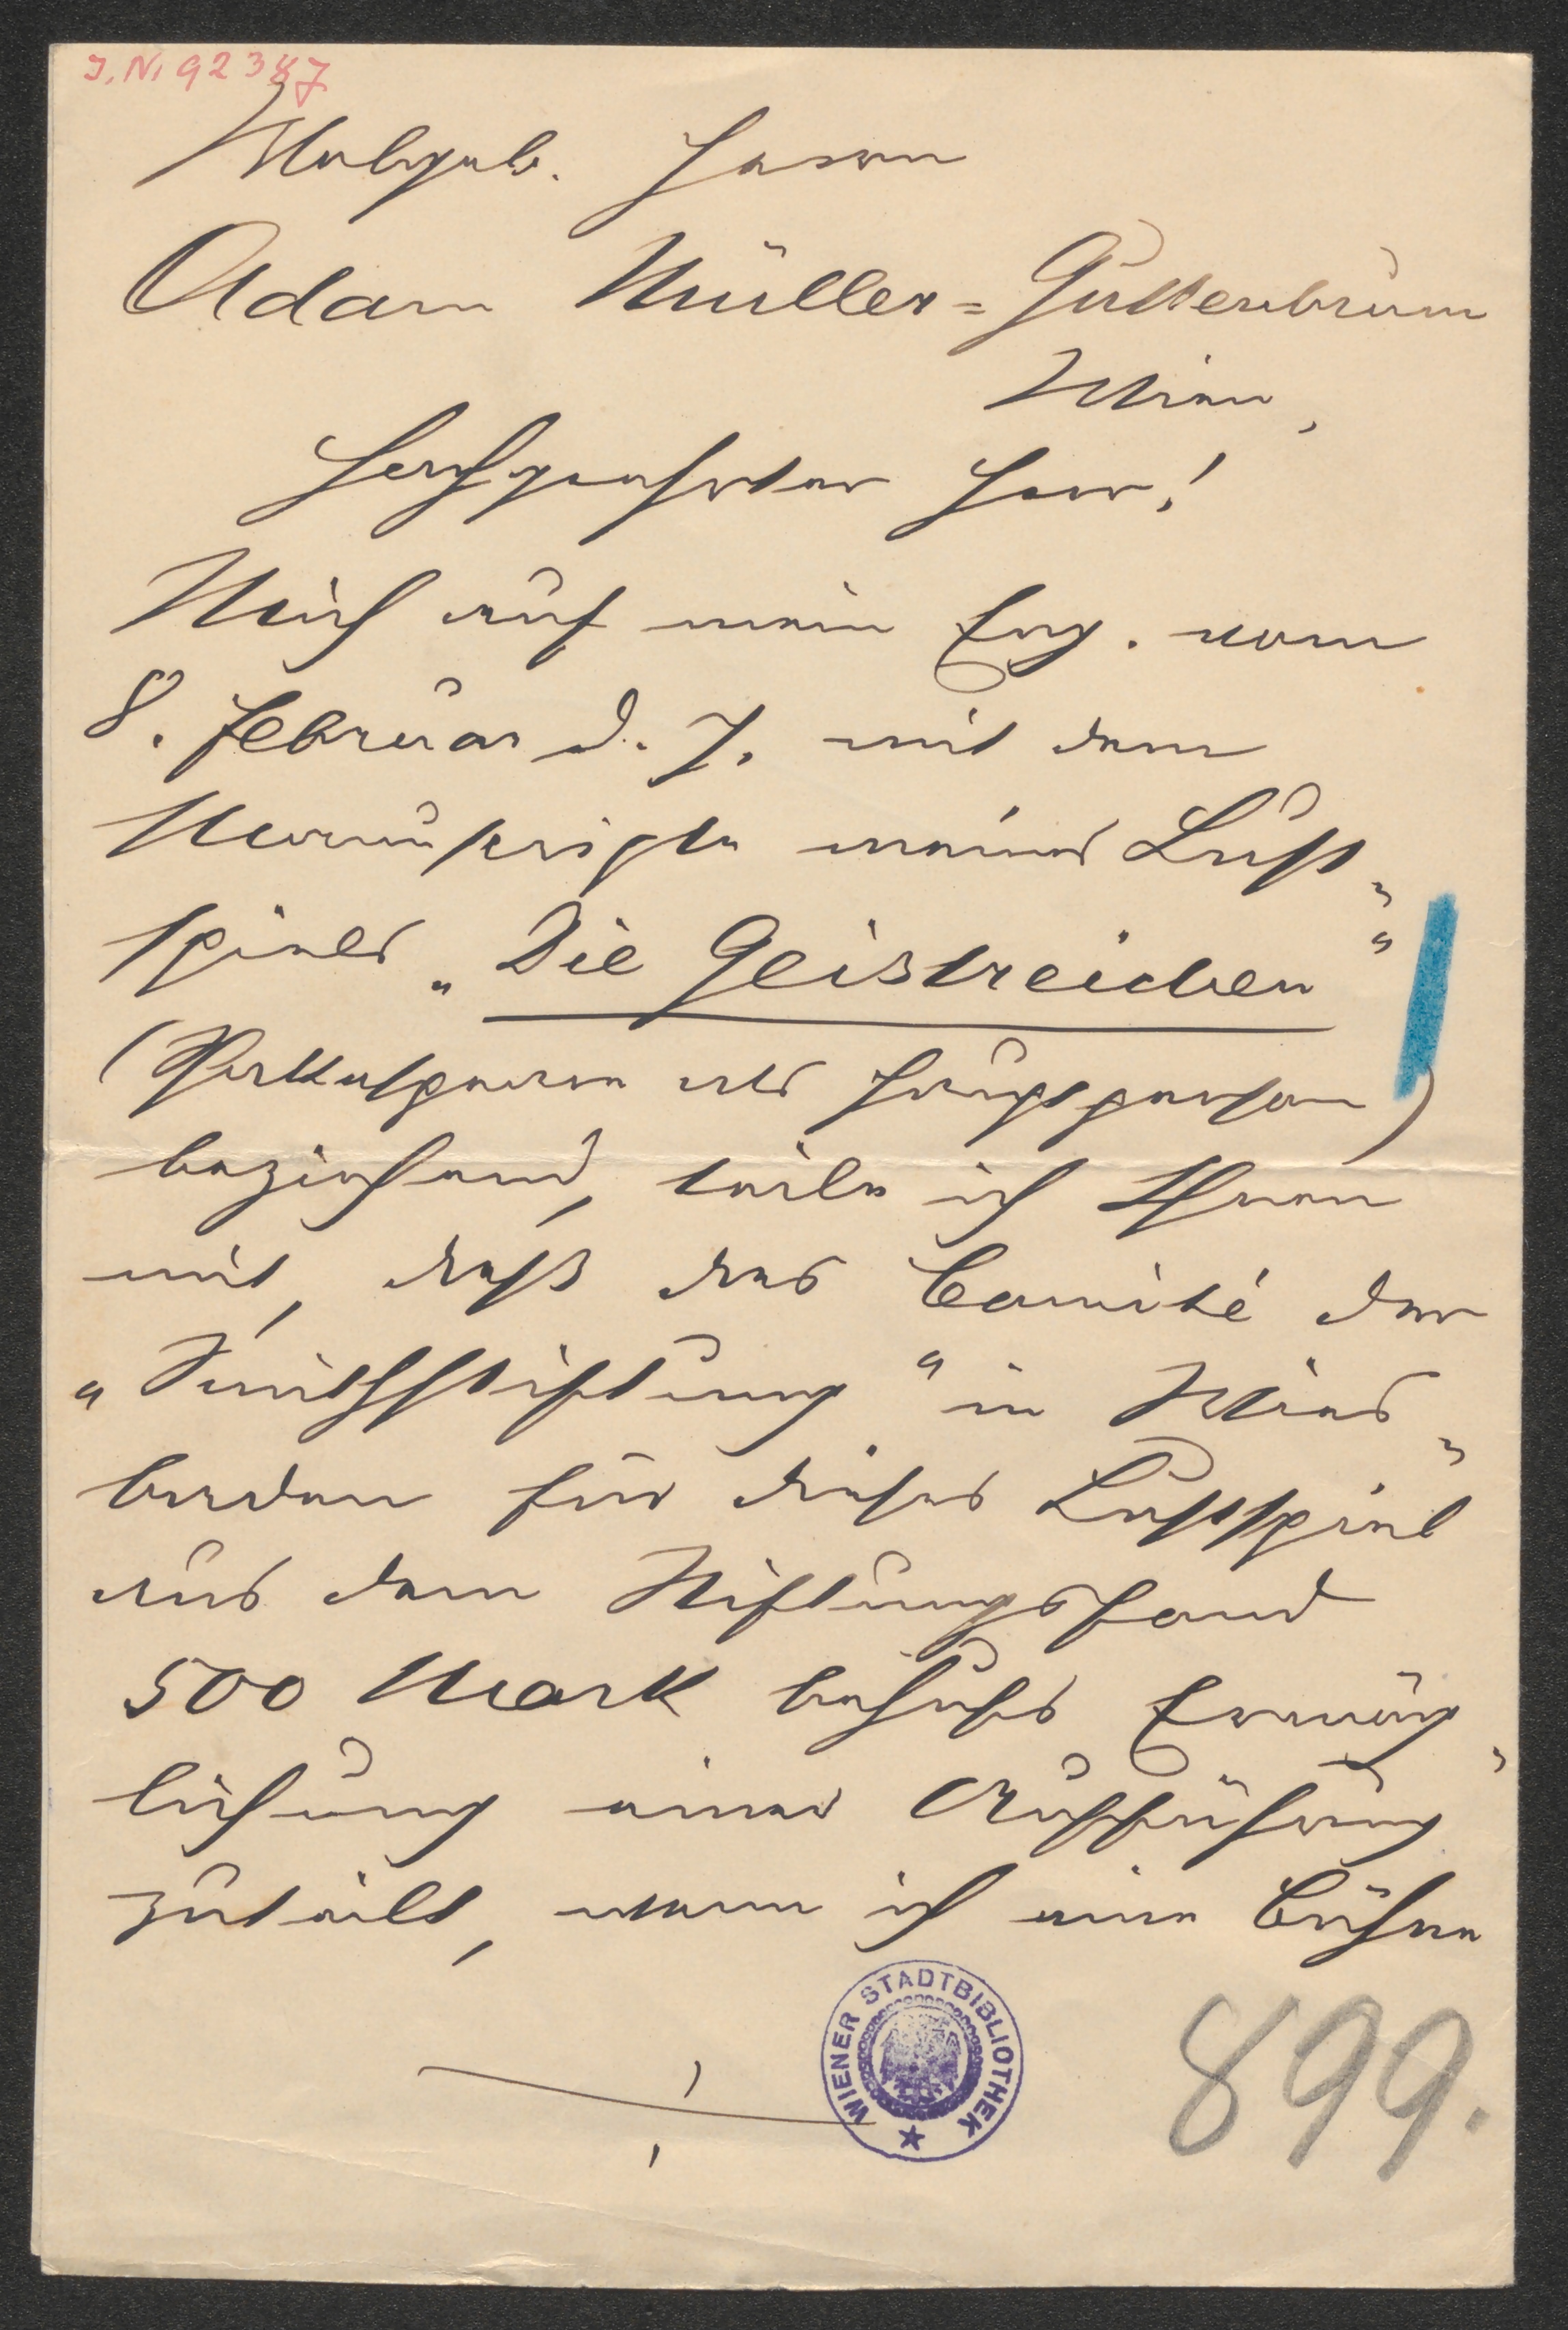 J. N. 92387
Wohlgeb. Herrn
Adam Müller=Guttenbrunn
Wien,
Hochgeehrter Herr!
Mich auf mein Erg. vom
8. Februar d. J. mit dem
Manuskripte meines Lust-
spieles „Die Geistreichen"
(                als Hauptperson)
beziehend, teile ich Ihnen
mit, daß das Comité der
„             " in Wies-
baden für dieses Lustspiel
aus dem Stiftungsfond
500 Mark behufs Ermög-
lichung einer Aufführung
zuteilt, wenn ich eine Bühne
WIENER STADTBIBLIOTHEK
899.